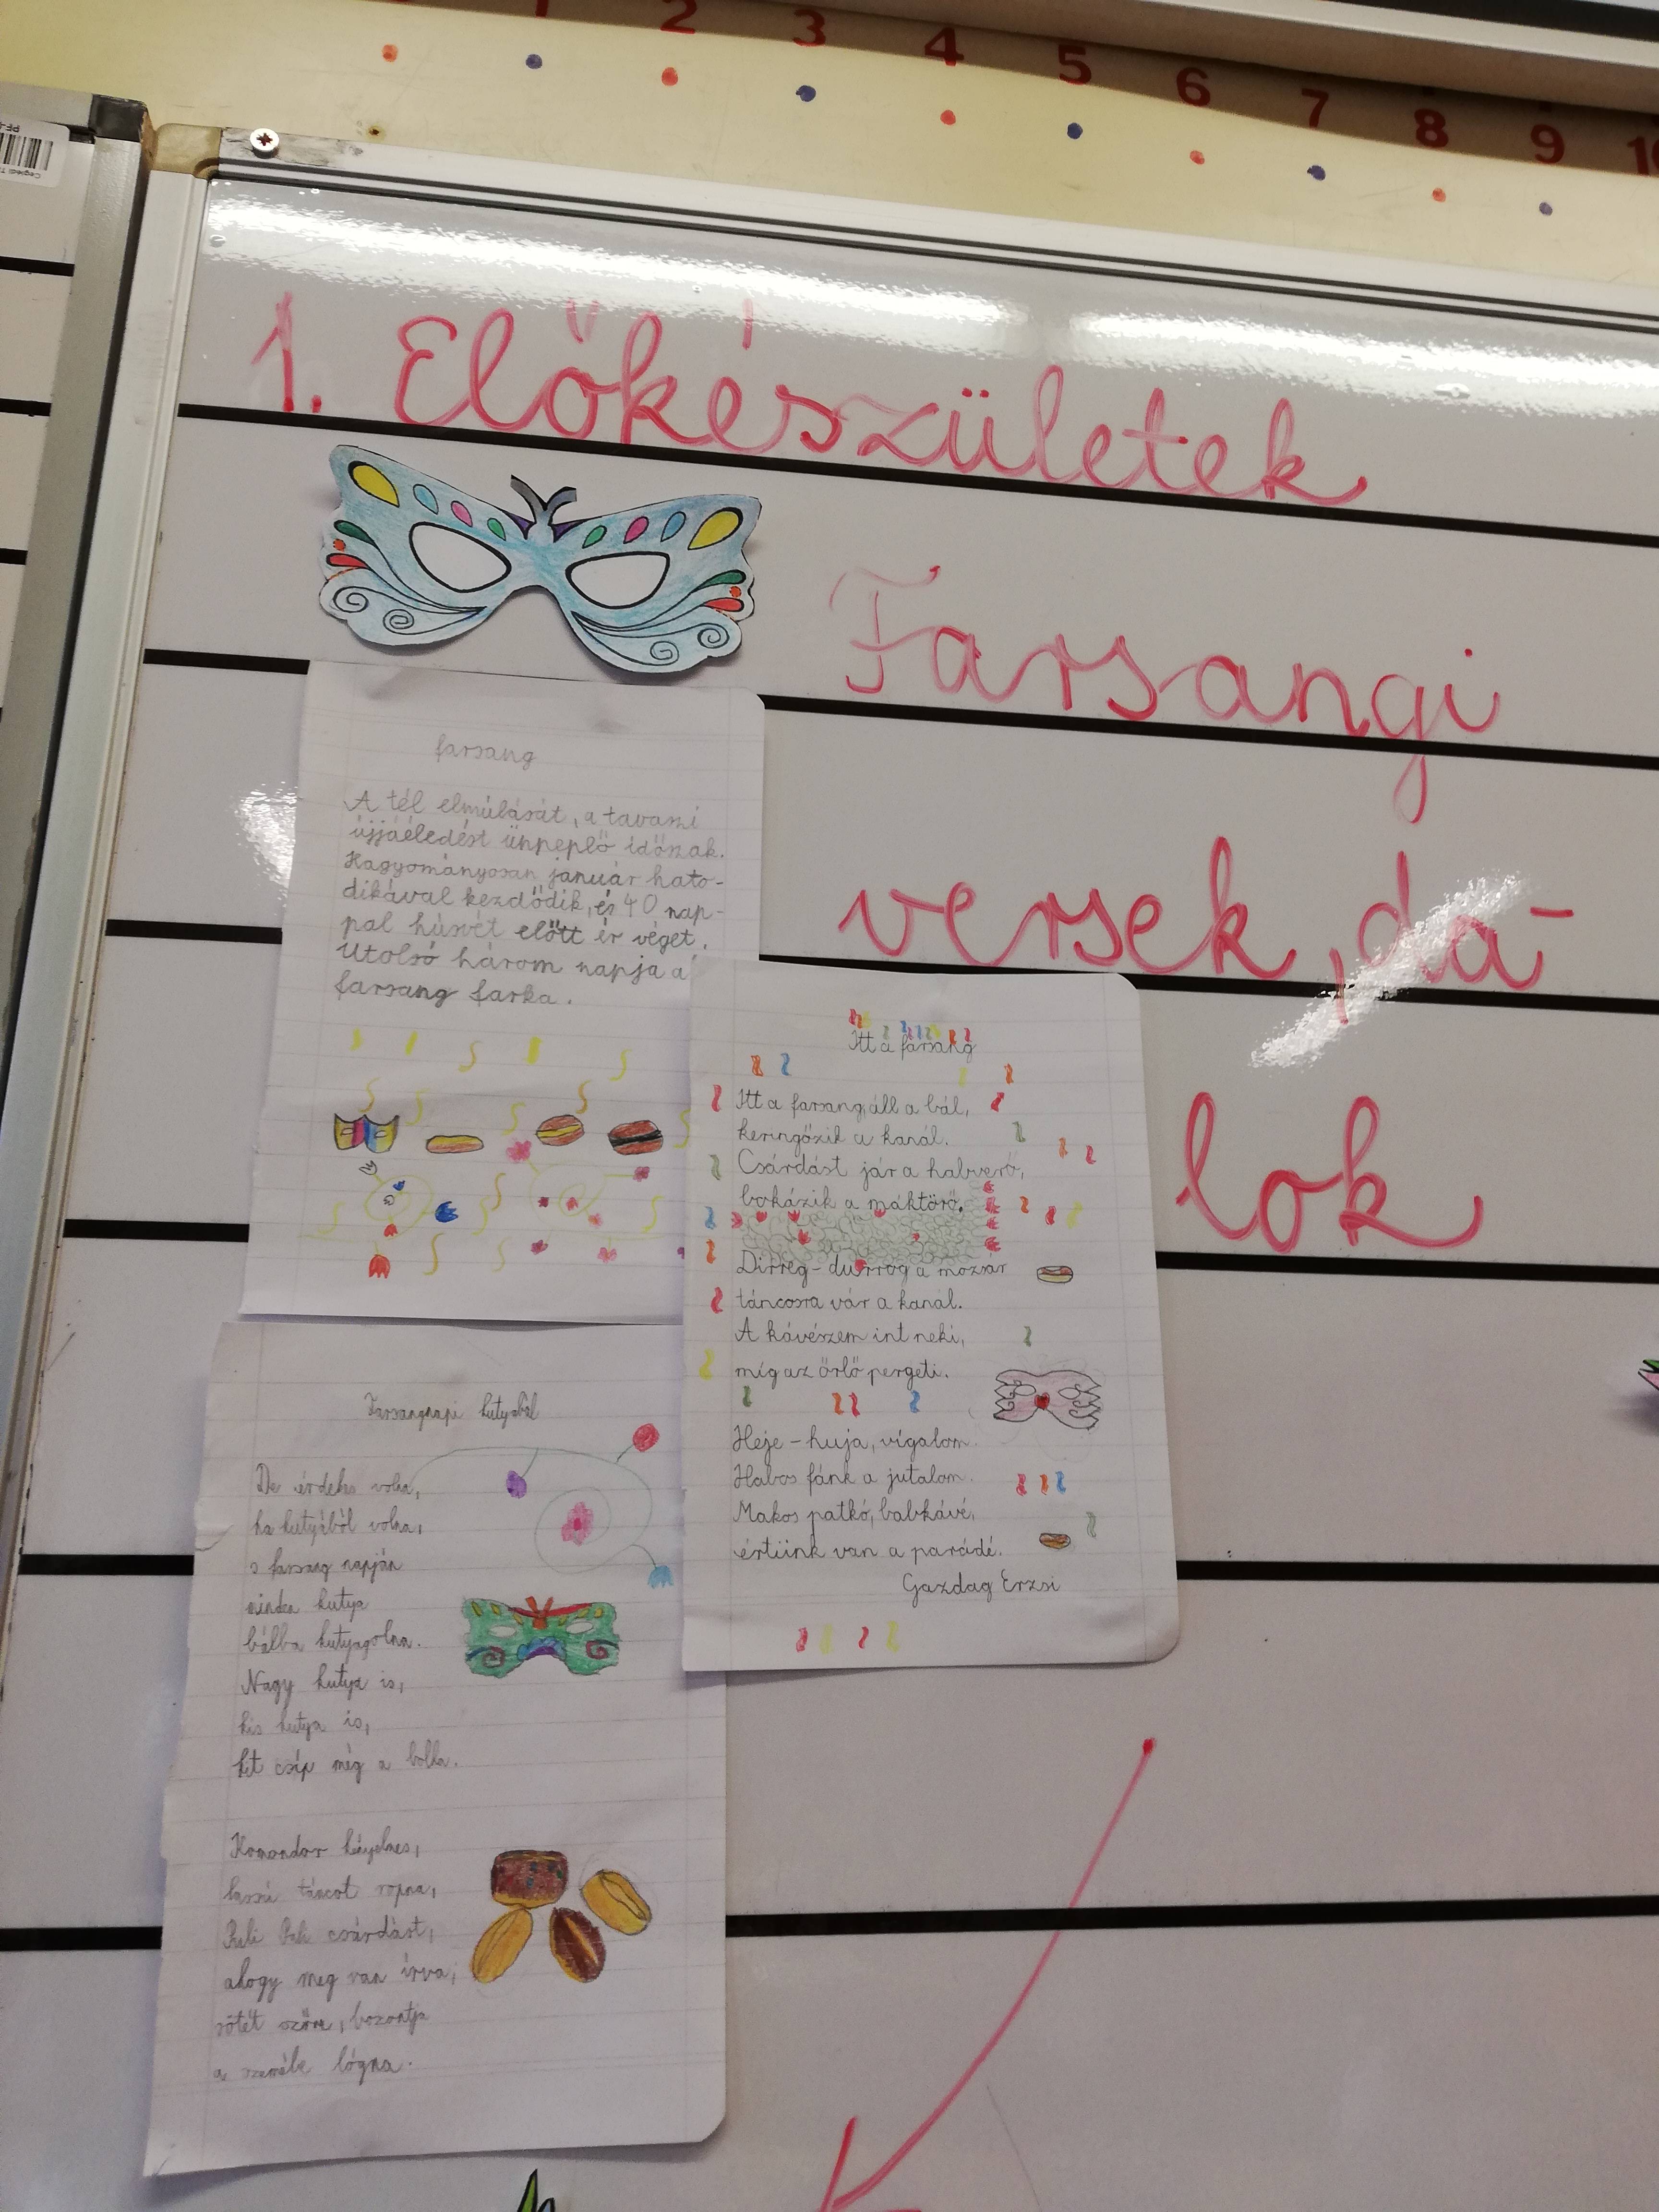 2 3 4 5 6 7 8 9
1. Előkészületek
Farsangi
versek, da-
lok
farsang
A tél elmúlását, a tavaszi
újjáéledést ünneplő időszak.
Hagyományosan január hato-
dikával kezdődik, és 40 nap-
pal húsvét előtt ér véget.
Utolsó három napja a
farsang farka.
Itt a farsang
Itt a farsang, áll a bál,
keringőzik a kanál.
Csárdást jár a habverő,
bokázik a máktörő.
Dirreg-durrog a mozsár
táncosra vár a kanál.
A kávészem int neki,
míg az őrlő pergeti.
Heje-huja, vígalom.
Habos fánk a jutalom.
Makos patkó, babkávé,
értünk van a parádé.
Gazdag Erzsi
Farsangnapi kutyabál
De érdekes volna,
ha kutyából volna,
s farsang napján
minden kutya
bálba kutyagolna.
Nagy kutya is,
kis kutya is,
kit csíp még a bolha.
Komondor kényelmes,
lassú táncot ropna,
Puli Pali csárdást,
ahogy meg van írva,
sötét szőre, bozontja
a szemébe lógna.